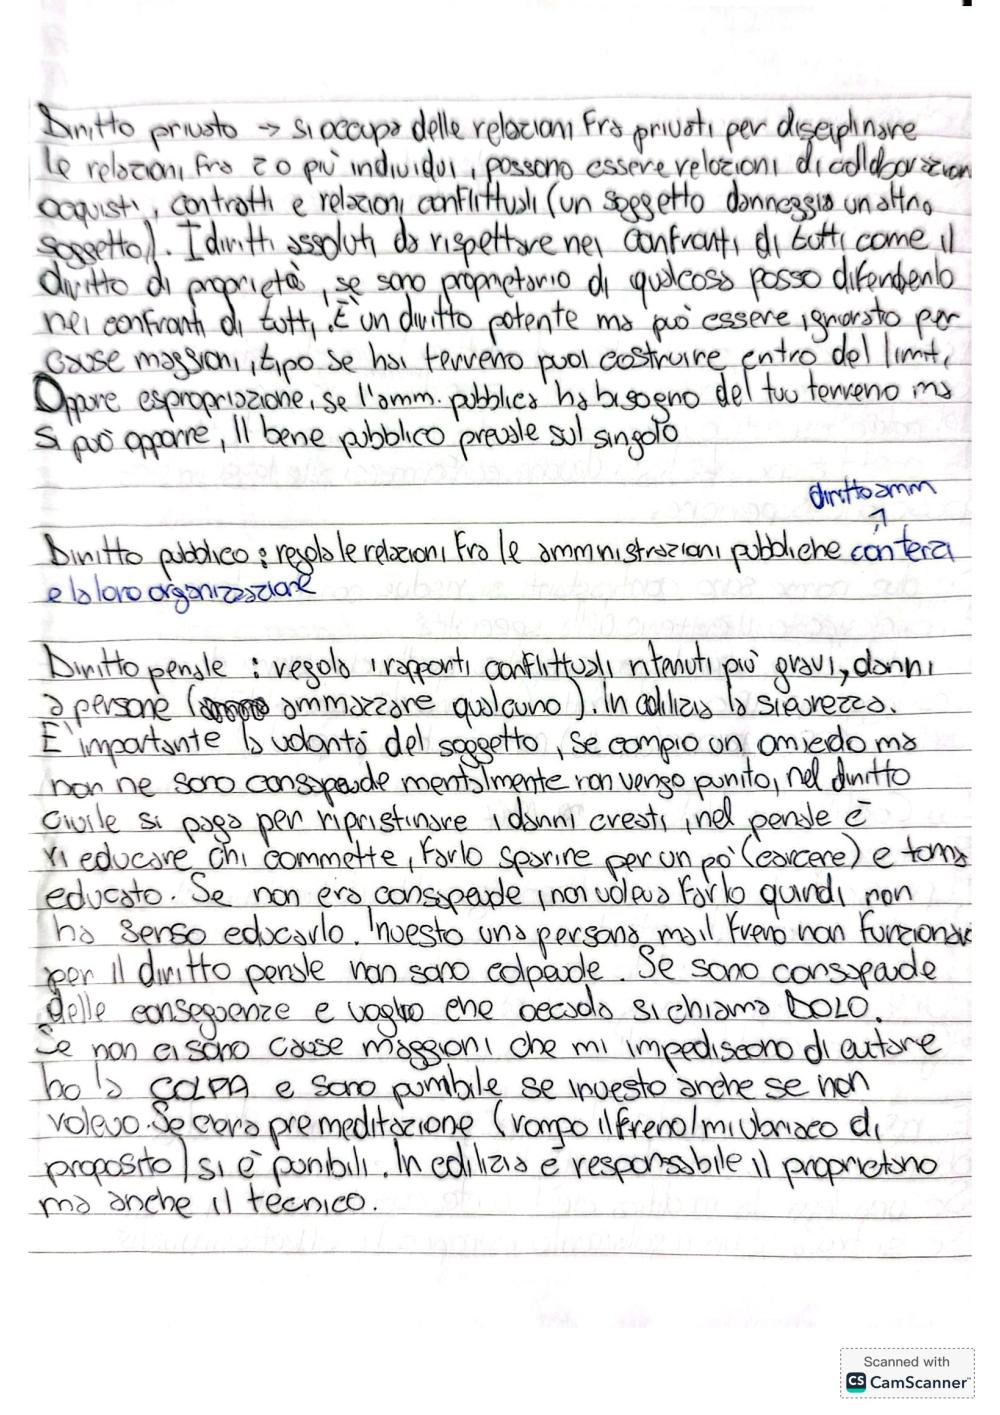 Diritto privato → si occupa delle relazioni fra privati per disciplinare
le relazioni fra 2 o più individui, possono essere relazioni di collaborazion
acquisti, contratti e relazioni conflittuali (un soggetto danneggia un altro
soggetto). I diritti assoluti da rispettare nei confronti di tutti come il
diritto di proprietà, se sono proprietario di qualcosa posso difenderlo
nei confronti di tutti. È un diritto potente ma può essere ignorato per
cause maggiori, tipo se hai terreno puoi costruire entro dei limiti,
Oppure espropriazione, se l'amm. pubblica ha bisogno del tuo terreno ma
si può opporre, Il bene pubblico prevale sul singolo
diritto amm
↗
Diritto pubblico : regola le relazioni fra le amministrazioni pubbliche con terzi
e la loro organizzazione
Diritto penale : regola i rapporti conflittuali ritenuti più gravi, danni
a persone (ammazzare qualcuno). In edilizia la sicurezza.
E' importante la volontà del soggetto, se compio un omicidio ma
non ne sono consapevole mentalmente non vengo punito, nel diritto
civile si paga per ripristinare i danni creati, nel penale è
rieducare chi commette, farlo sparire per un po' (carcere) e torna
educato. Se non era consapevole, non voleva farlo quindi non
ha senso educarlo. Investo una persona ma il freno non funzionava
per il diritto penale non sono colpevole. Se sono consapevole
delle conseguenze e voglio che accada si chiama DOLO.
Se non ci sono cause maggiori che mi impediscono di evitare
ho la COLPA e sono punibile se investo anche se non
volevo. Se c'era premeditazione (rompo il freno/mi ubriaco di
proposito) si è punibili. In edilizia è responsabile il proprietario
ma anche il tecnico.
Scanned with
CS CamScanner